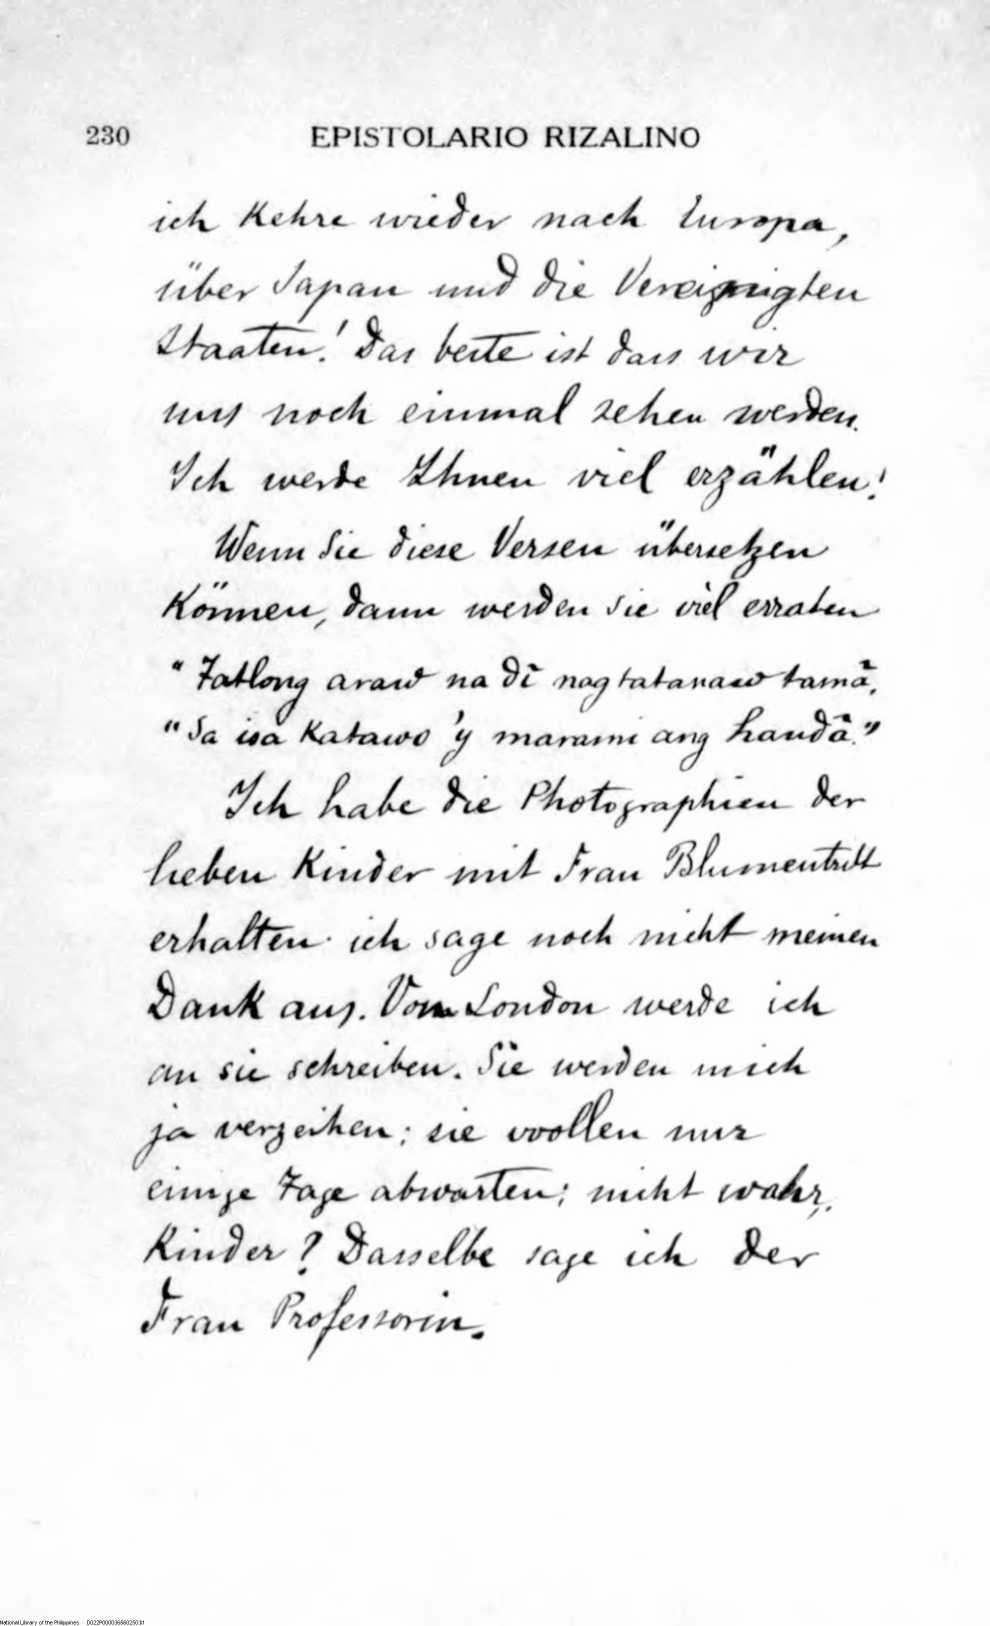 230 EPISTOLARIO RIZALINO
ich kehre wieder nach Europa,
über Japan und die Vereinigten
Staaten! Das beste ist dass wir
uns noch einmal sehen werden.
Ich werde Ihnen viel erzählen!
Wenn Sie diese Versen übersetzen
können, dann werden Sie viel erraten
"Tatlong araw na dî nagtatanaw tamâ,
"Sa isa katawo 'y marami ang handâ."
Ich habe die Photographien der
lieben Kinder mit Frau Blumentritt
erhalten. ich sage noch nicht meinen
Dank aus. Von London werde ich
an sie schreiben. Sie werden mich
ja verzeihen; sie wollen nur
einige Tage abwarten; nicht wahr,
Kinder? Dasselbe sage ich der
Frau Professorin.
National Library of the Philippines